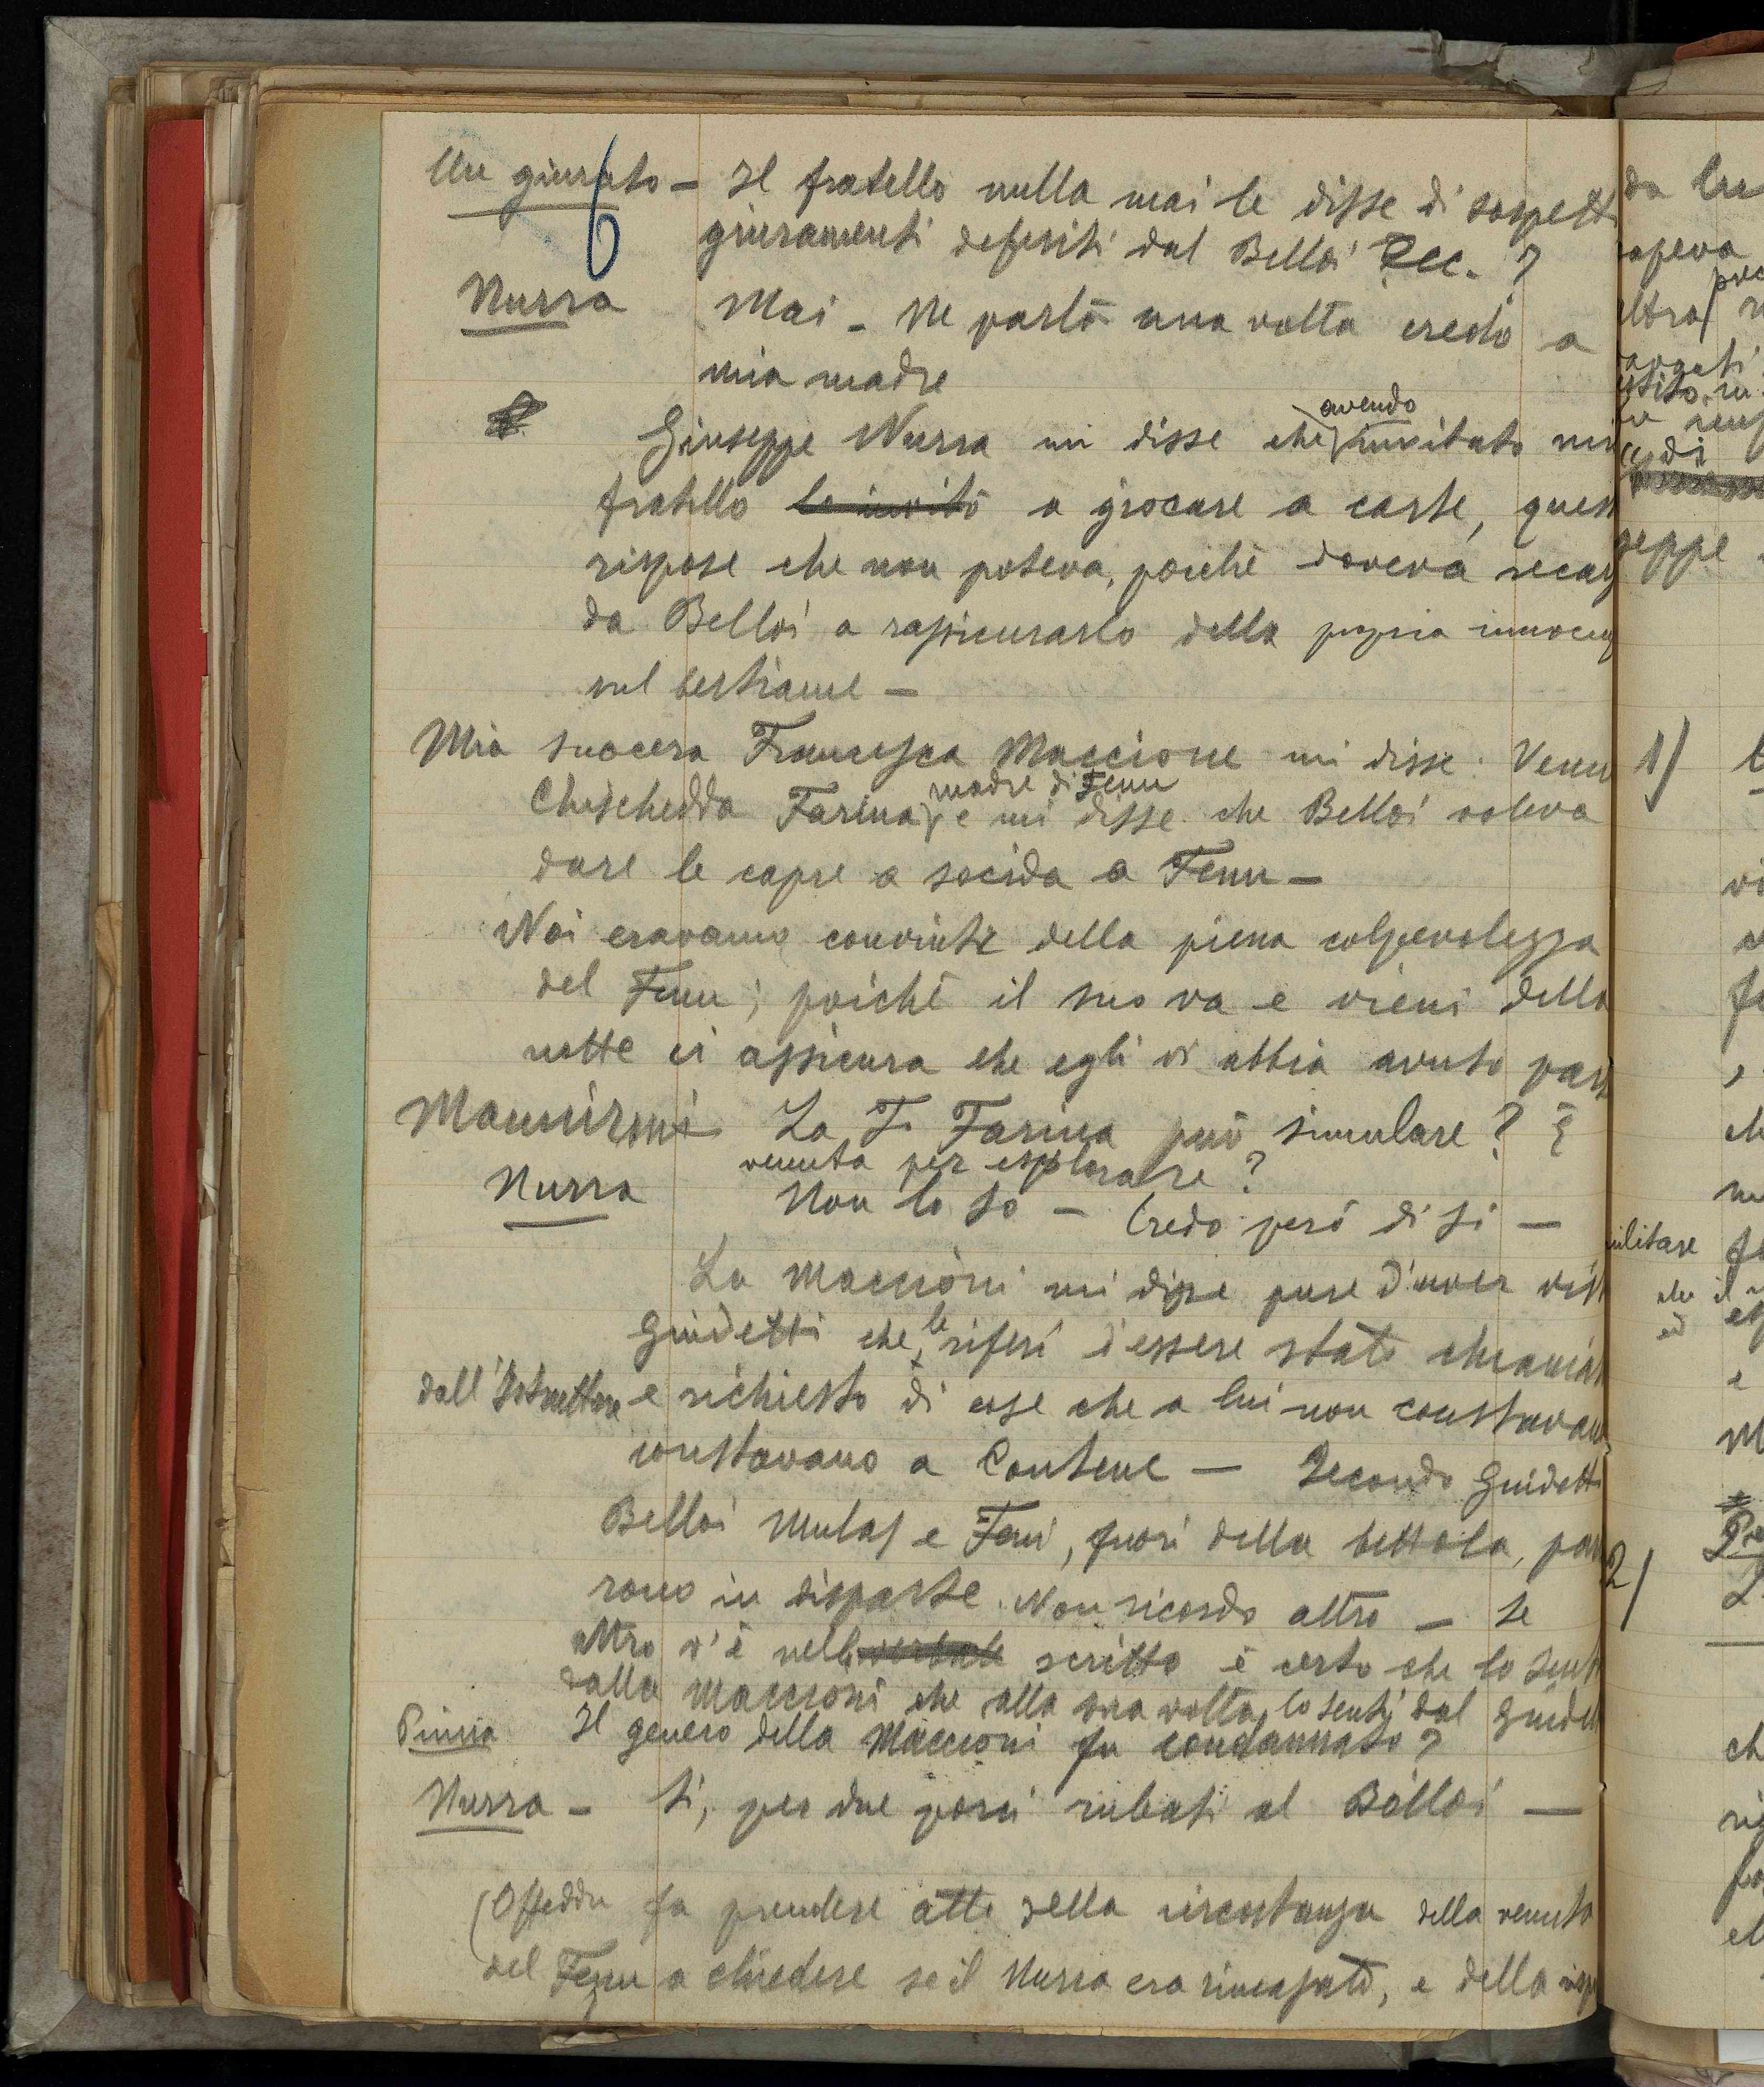 6
Un giurato - Il fratello nulla mai le disse di sospetti
giuramenti deferiti dal Belloi Ecc. ?
Nurra Mai - Ne parlò una volta credo a
mia madre
avendo
Giuseppe Nurra mi disse che invitato mi
fratello le invitò a giocare a carte, quest
rispose che non poteva, poichè doveva recar
da Belloi a rassicurarlo della propria innocenz
sul bestiame -
Mia suocera Francesca Maccione mi disse: Venn
madre di Fenu
Chischedda Farina, e mi disse che Belloi voleva
dare le capre a socida a Fenu -
Noi eravamo convinti della piena colpevolezza
del Fenu; poichè il suo va e vieni della
notte ci assicura che egli vi abbia avuto part
Mannironi La F. Farina può simulare? È
venuta per esplorare?
Nurra Non lo so - Credo però di si -
La Maccioni mi disse pure d'aver vist
Guidetti che le riferì d'essere stato chiamat
dall'Istruttore e richiesto di cose che a lui non constavan
constavano a Contene - Secondo Guidetti
Belloi Mulas e Feni, fuori della bettola, par
rono in disparte. Non ricordo altro - Se
altro v'è nello verbale scritto è certo che lo sent
dalla Maccioni che alla sua volta lo sentì dal Guidett
Pinna Il genero della Maccioni fu condannato?
Nurra - Si, per due porci rubati al Belloi -
(Offeddu fa prendere atto della circostanza della venuta
del Fenu a chiedere se il Nurra era rincasato, e della risp
da lu
sapeva
altro
di
seppe
1)
militare
che il
ed
e
2)
ch